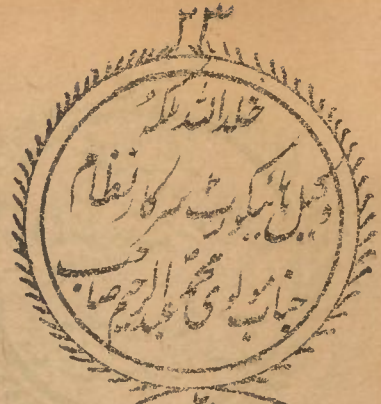 ۲۳
خلد اللہ ملکہ
وکیل ہائیکورٹ سرکار نظام
جناب مولوی محمد عبدالرحیم صاحب